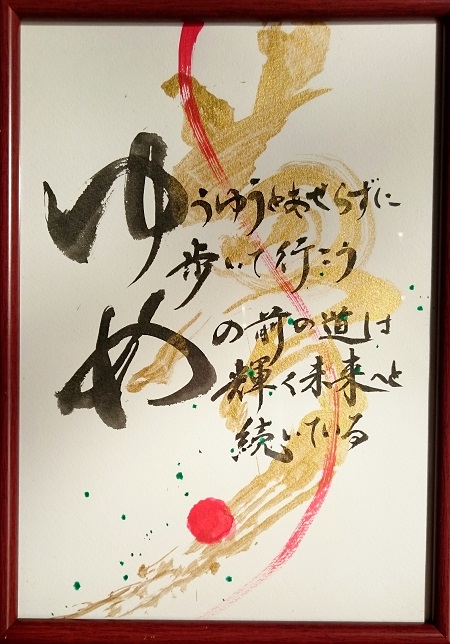 ゆうゆうとあせらずに
歩いて行こう
めの前の道は
輝く未来へと
続いている